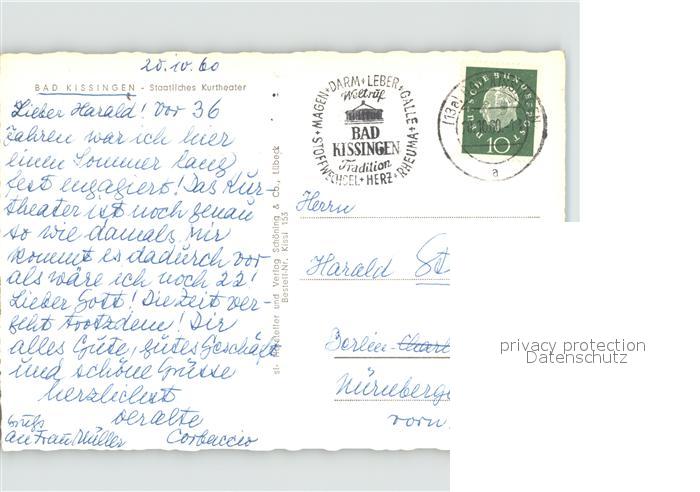 20.10.60
BAD KISSINGEN - Staatliches Kurtheater
Lieber Harald! Vor 36
Jahren war ich hier
einen Sommer lang
fest engagiert! Das Kur-
theater ist noch genau
so wie damals, mir
kommt es dadurch vor
als wäre ich noch 22!
Lieber Gott! Die Zeit ver-
geht trotzdem! Dir
alles Gute, gutes Geschäft
und schöne Grüsse
herzlichst
der alte
Corbaccio
Gruß
an Frau Müller
Verlag Schöning & Co., Lübeck
Bestell-Nr. Kissi 153
STOFFWECHSEL + MAGEN + DARM + LEBER + GALLE + RHEUMA + HERZ
Weltruf
BAD
KISSINGEN
Tradition
(13a)
a
DEUTSCHE BUNDESPOST
10
Herrn
Harald St
Berlin-Charl
Nürnberge
vorn.
privacy protection
Datenschutz